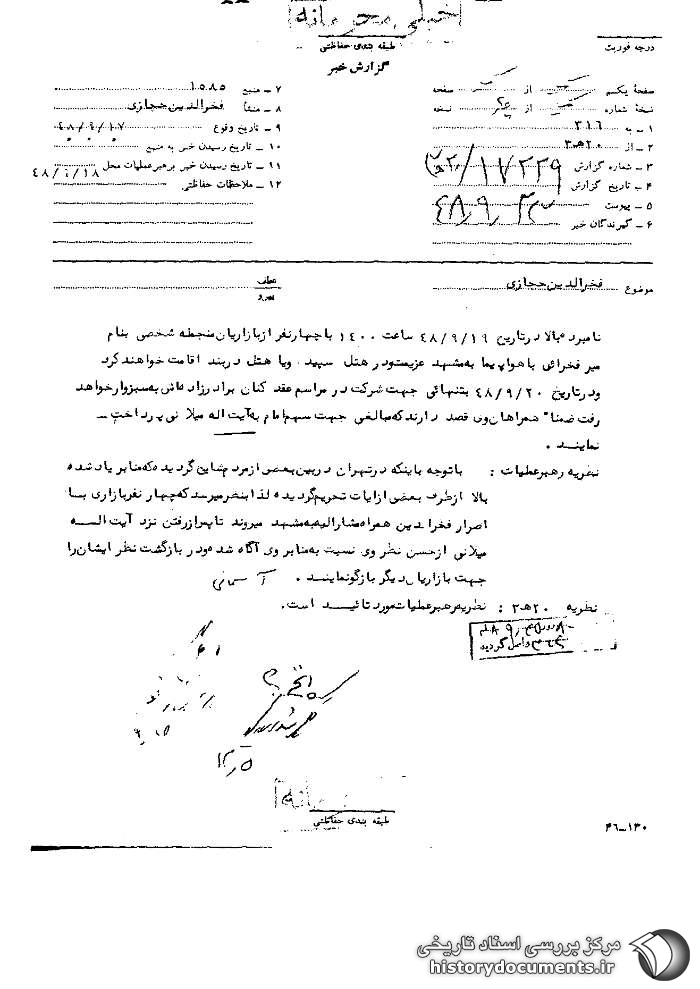 خیلی محرمانه
طبقه بندی حفاظتی
درجه فوریت
گزارش خبر
صفحهٔ یک از یک صفحه
نسخهٔ شماره از نسخه
۱ – به ۳۱۶
۲ – از ۲۰هـ۳
۳ – شماره گزارش ۱۷۲۲۹
۴ – تاریخ گزارش
۵ – پیوست ۴۸/۹/
۶ – گیرندگان خبر
۷ – منبع ۱۵۸۵
۸ – منشأ فخرالدین حجازی
۹ – تاریخ وقوع ۴۸/۹/۱۷
۱۰ – تاریخ رسیدن خبر به منبع
۱۱ – تاریخ رسیدن خبر برهبر عملیات محل ۴۸/۹/۱۸
۱۲ – ملاحظات حفاظتی
موضوع فخرالدین حجازی
عطف
پیرو
نامبرده بالا در تاریخ ۴۸/۹/۱۹ ساعت ۱۴۰۰ با چهار نفر از بازاریان منجمله شخصی بنام
میر فخرائی با هواپیما به مشهد عزیمت و در هتل سپید ویا هتل دربند اقامت خواهند کرد
و در تاریخ ۴۸/۹/۲۰ بتنهائی جهت شرکت در مراسم عقد کنان برادرزاده اش به سبزوار خواهد
رفت ضمنا" همراهان وی قصد دارند که مبالغی جهت سهم امام به آیت اله میلانی پرداخت –
نمایند .
نظریه رهبر عملیات : با توجه باینکه در تهران در بین بعضی از مردم شایع گردیده که منابر یاد شده
بالا از طرف بعضی از ایات تحریم گردیده لذا بنظر میرسد که چهار نفر بازاری بنا
اصرار فخرالدین همراه مشارالیه به مشهد میروند تا پس از رفتن نزد آیت السه
میلانی از حسن نظر وی نسبت به منابر وی آگاه شده و در بازگشت نظر ایشان را
جهت بازاریان دیگر بازگو نمایند . آسمانی
نظریه ۲۰هـ۳ : نظریه رهبر عملیات مورد تائید است.
واصل گردید
طبقه بندی حفاظتی
۴۶–۱۳۰
مرکز بررسی اسناد تاریخی
historydocuments.ir